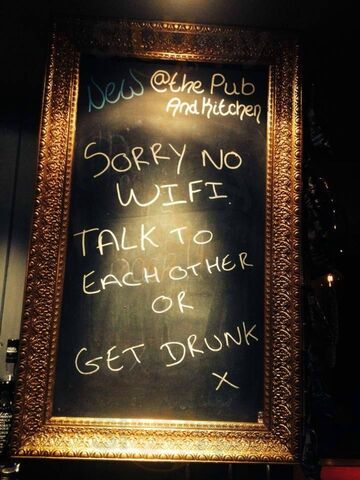 New @the Pub
And Kitchen
SORRY NO
WIFI.
TALK TO
EACH OTHER
OR
GET DRUNK
X